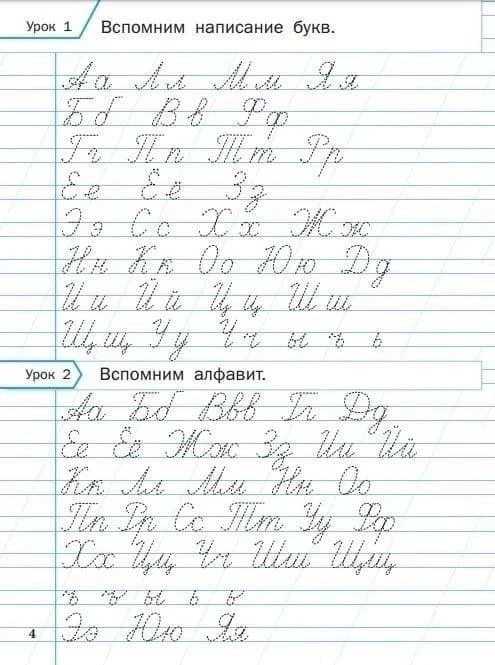 Урок 1 Вспомним написание букв.
Аа Лл Мм Яя
Бб Вв Фф
Гг Пп Тт Рр
Ее Ёё Зз
Ээ Сс Хх Жж
Нн Кк Оо Юю Дд
Ии Йй Цц Шш
Щщ Уу Чч ы ъ ь
Урок 2 Вспомним алфавит.
Аа Бб Ввв Гг Дд
Ее Ёё Жж Зз Ии Йй
Кк Лл Мм Нн Оо
Пп Рр Сс Тт Уу Фф
Хх Цц Чч Шш Щщ
ъ ъ ы ь ь
4 Ээ Юю Яя